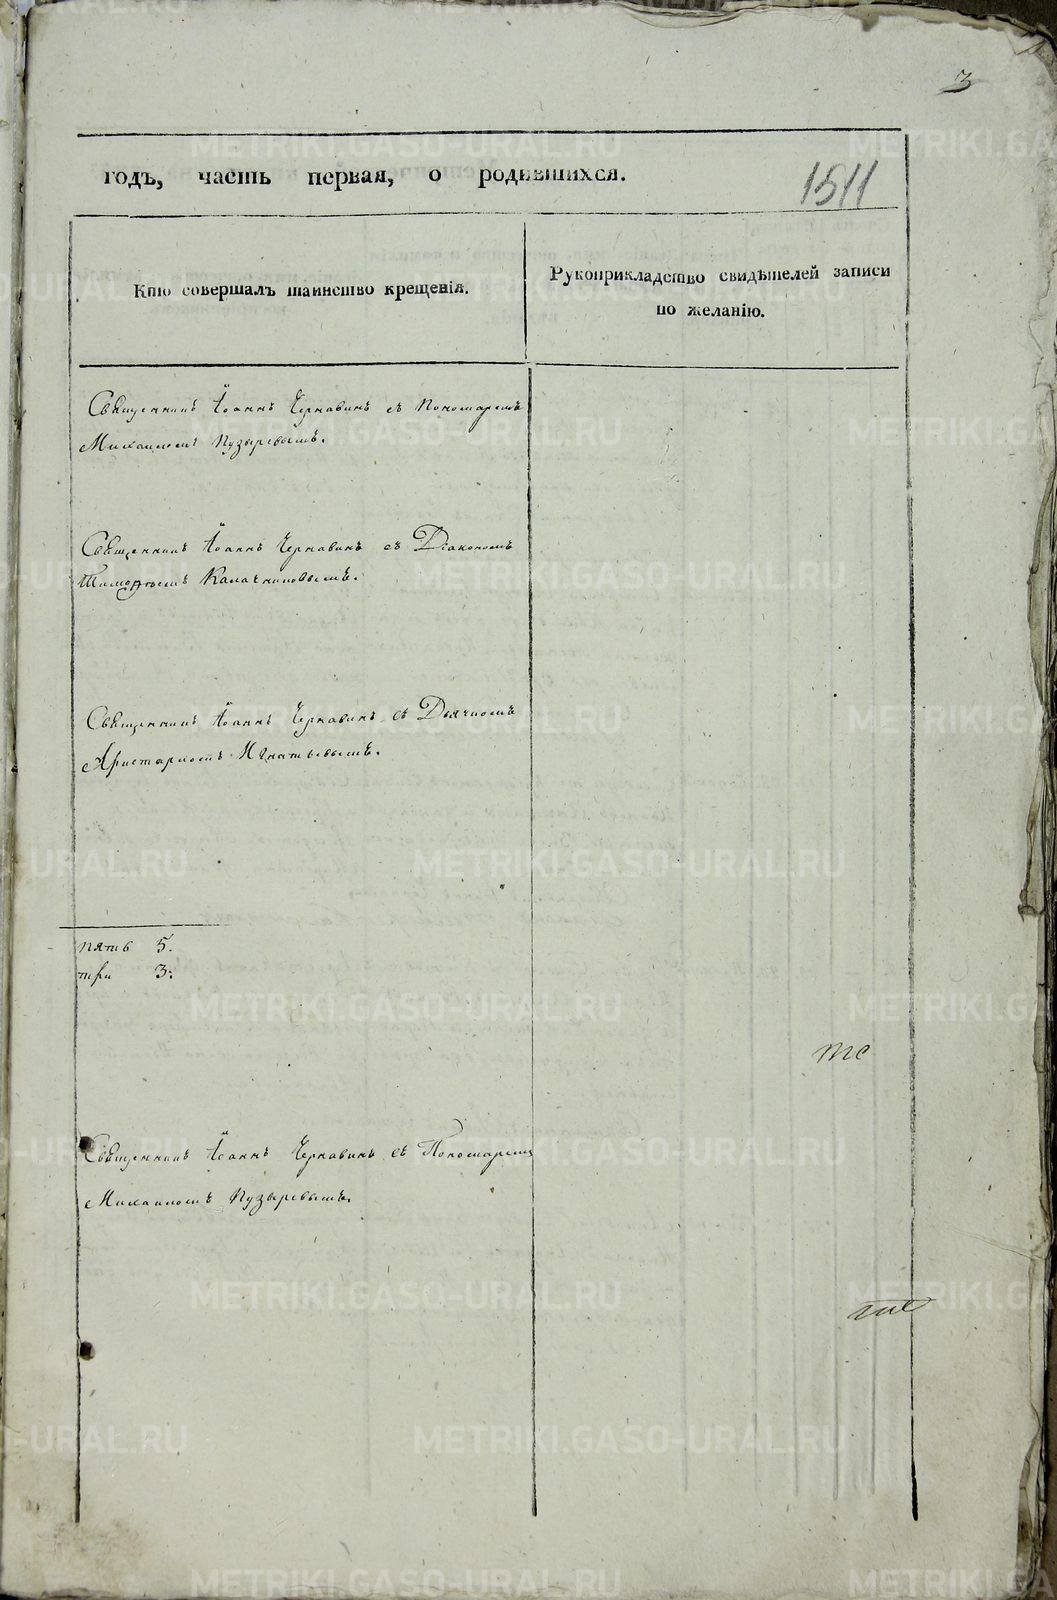 3
годъ, часть первая, о родившихся.
1511
Кто совершалъ таинство крещенія.
Рукоприкладство свидѣтелей записи
по желанію.
Священникъ Іоаннъ Чернавинъ съ Пономаремъ
Михаиломъ Пузыревымъ.
Священникъ Іоаннъ Чернавинъ съ Діакономъ
Тимофѣемъ Калачниковымъ.
Священникъ Іоаннъ Чернавинъ съ Дьячкомъ
Аристархомъ Игнатьевымъ.
пять 5.
три 3:
Священникъ Іоаннъ Чернавинъ съ Пономаремъ
Михаиломъ Пузыревымъ.
METRIKI.GASO-URAL.RU